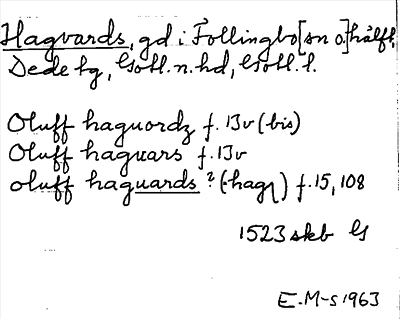 Hagvards, gd i Follingbo [sn o.] hälft,
Dede tg, Gotl. n. hd, Gotl. l.
Oluff haguordz f. 13v (bis)
Oluff haguars f. 13v
oluff haguards ? (-hagꝭ) f. 15, 108
1523 skb G
E. M-s 1963